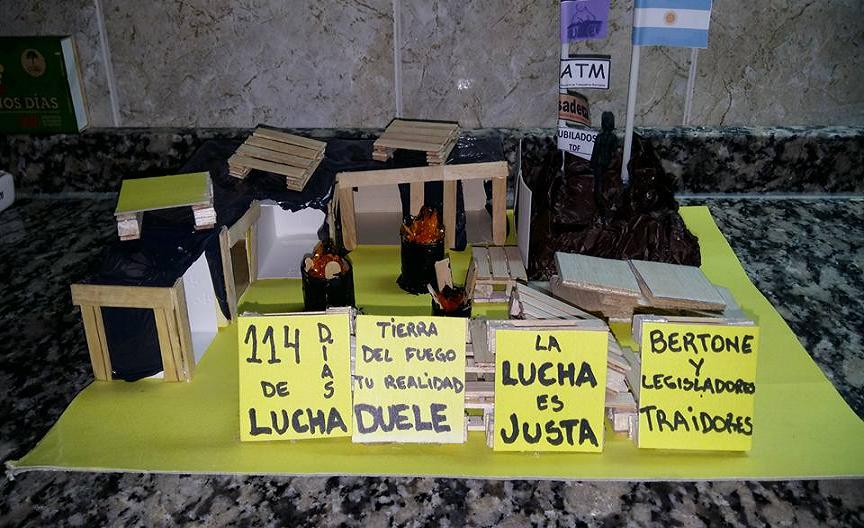 OS DÍAS
ATM
UBILADOS
TDF
114 DIAS
DE
LUCHA
TiERRA
DEL FUEGO
TU REALIDAD
DUELE
LA
LUCHA
ES
JUSTA
BERTONE
Y
LEGISLADORES
TRAiDORES